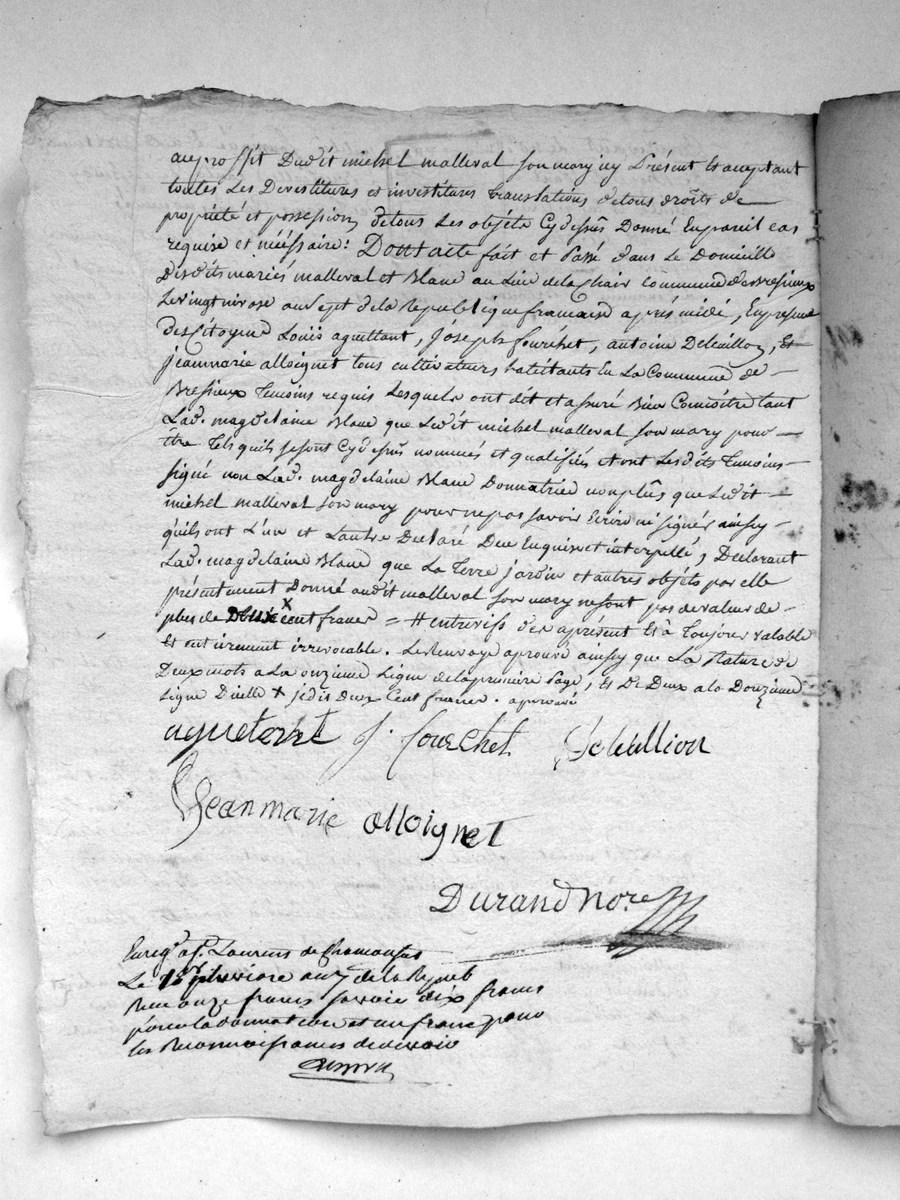 au proffit Dudit michel malleval son mary icy Présent et aceptant
toutes Les Devestitures et investitures translations de tous droits de
propriété et possession, de tous Les objets Cy dessus Donné En pareil cas
requise et néssaire: Dont acte fait et Passé dans Le Domicille
Desdits mariés malleval et Blanc au Lieu de la Chair Commune de Bressieux
Le vingt nivose an Sept de la Republique francaise après midi, En presence
des Citoyens Louis aguettant, Joseph fourchet, antoine Deleuillon, Et
jeanmarie alloignet tous cultivateurs habitants En La Commune de
Bressieux Temoins requis Lesquels ont dit et assuré Bien Connoitre tant
Lad. magdelaine Blanc que Ledit michel malleval son mary pour
être Tels quils se sont Cy dessus nommés et qualifiés et ont Lesdits Temoins
signé non Lad. magdelaine Blanc Donnatrice non plus que Ledit
michel malleval son mary pour ne pas savoir Ecrire ni signér ainsy
qu'ils ont L'un et L'autre Declaré De ce Enquis et interpellé, Declarant
Lad. magdelaine Blanc que La Terre jardin et autres objets par elle
présentement Donné audit malleval son mary ne sont pas de valeur de
plus de Deux cent francs = # entrevifs des apresent Et à Toujours valable
Et entierement irrevocable. Le Renvoy aprouvé ainsy que La Rature de
Deux mots a La onzieme Ligne de la premiere Page, Et De Deux a la Douzieme
Ligne D'icelle + je dis deux Cent francs. aprouvé
aguetant J. fourchet Deleullion
Jean marie alloignet
Durand no.re
Enreg.é a S.t Laurens de
Le 1er pluviose an 7 de la Repub
Recu onze francs savoir dix francs
pour la donnation et un franc pour
les Reconnoissances